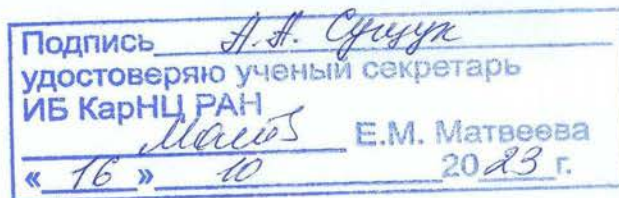 Подпись А.А. Сущук
удостоверяю ученый секретарь
ИБ КарНЦ РАН
Е.М. Матвеева
« 16 » 10 2023 г.